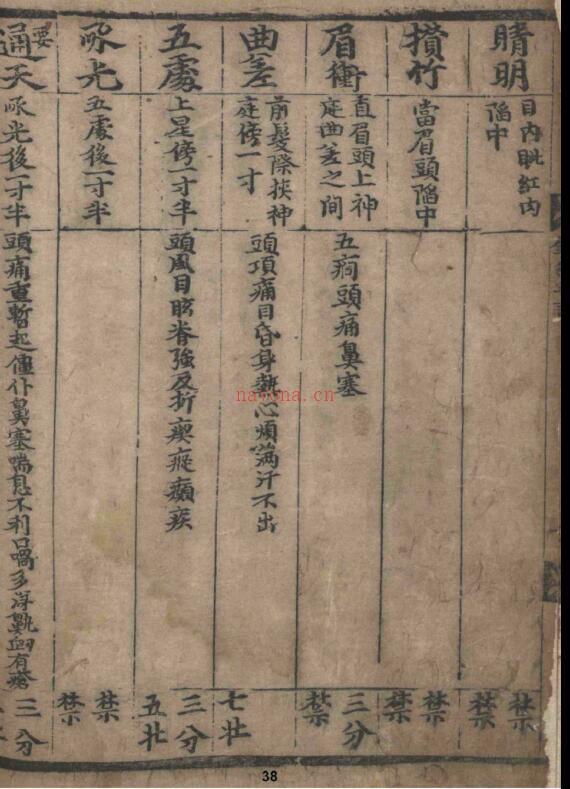 晴明
目内眦紅内
陷中
禁
禁
攅竹
當眉頭陷中
禁
禁
眉衝
直眉頭上神
庭曲差之間
五癇頭痛鼻塞
三分
禁
曲差
前髮際挾神
庭傍一寸
頭項痛目昏身熱心煩滿汗不出
七壯
五處
上星傍一寸半
頭風目眩脊強反折瘈瘲癲疾
三分
五壯
承光
五處後一寸半
禁
禁
要
通天
承光後一寸半
頭痛重暫起僵仆鼻塞喘息不利口喎多涕鼽衄有瘡
三分
nayona.cn
38